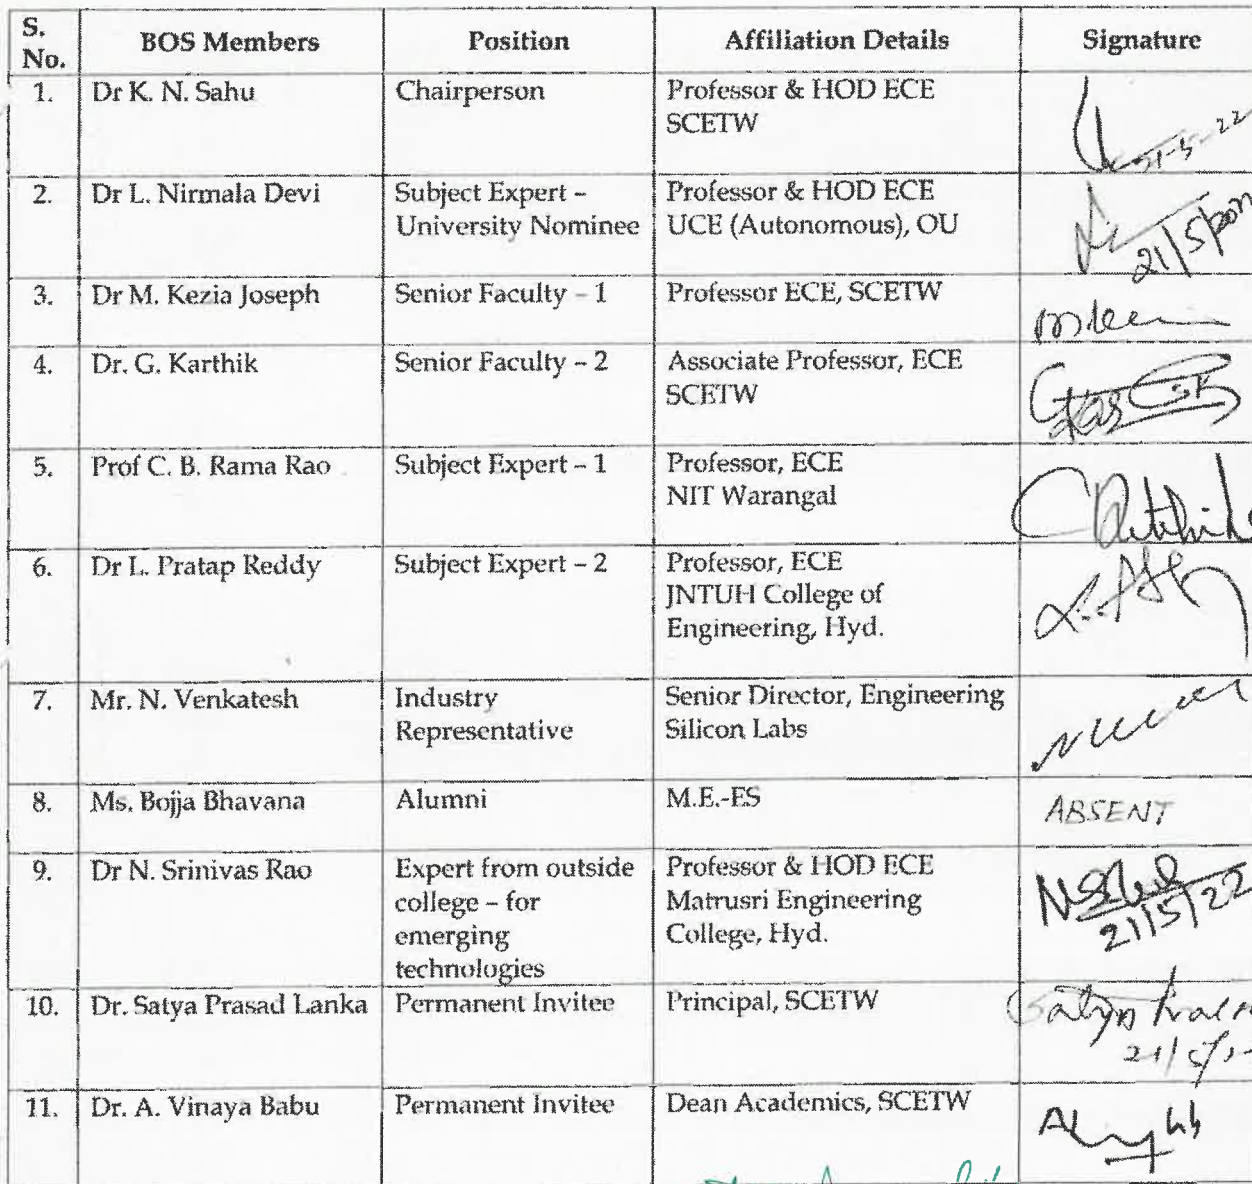 S. No. BOS Members Position Affiliation Details Signature
1. Dr K. N. Sahu Chairperson Professor & HOD ECE
SCETW
2. Dr L. Nirmala Devi Subject Expert – Professor & HOD ECE
University Nominee UCE (Autonomous), OU
21/5/2022
3. Dr M. Kezia Joseph Senior Faculty – 1 Professor ECE, SCETW
4. Dr. G. Karthik Senior Faculty – 2 Associate Professor, ECE
SCETW
5. Prof C. B. Rama Rao Subject Expert – 1 Professor, ECE
NIT Warangal
6. Dr L. Pratap Reddy Subject Expert – 2 Professor, ECE
JNTUH College of
Engineering, Hyd.
7. Mr. N. Venkatesh Industry Senior Director, Engineering
Representative Silicon Labs
8. Ms. Bojja Bhavana Alumni M.E.-ES ABSENT
9. Dr N. Srinivas Rao Expert from outside Professor & HOD ECE
college – for Matrusri Engineering
emerging College, Hyd.
technologies
21/5/22
10. Dr. Satya Prasad Lanka Permanent Invitee Principal, SCETW
11. Dr. A. Vinaya Babu Permanent Invitee Dean Academics, SCETW